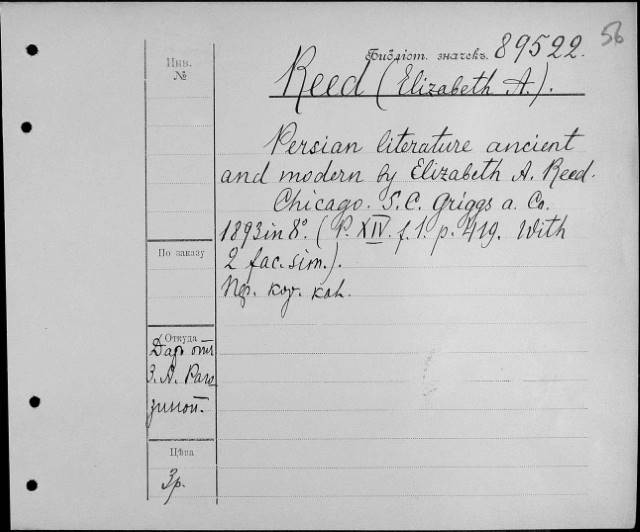 56
Библіот. значекъ. 89522.
Инв.
№
Reed (Elizabeth A.).
Persian literature ancient
and modern by Elizabeth A. Reed.
Chicago. S.C. Griggs a. Co.
1893 in 8°. (P. XIV. f. 1. p. 419. With
2 fac. sim.).
По заказу
Откуда
Даръ отъ
З. А. Раго
зиной.
Цѣна
3р.